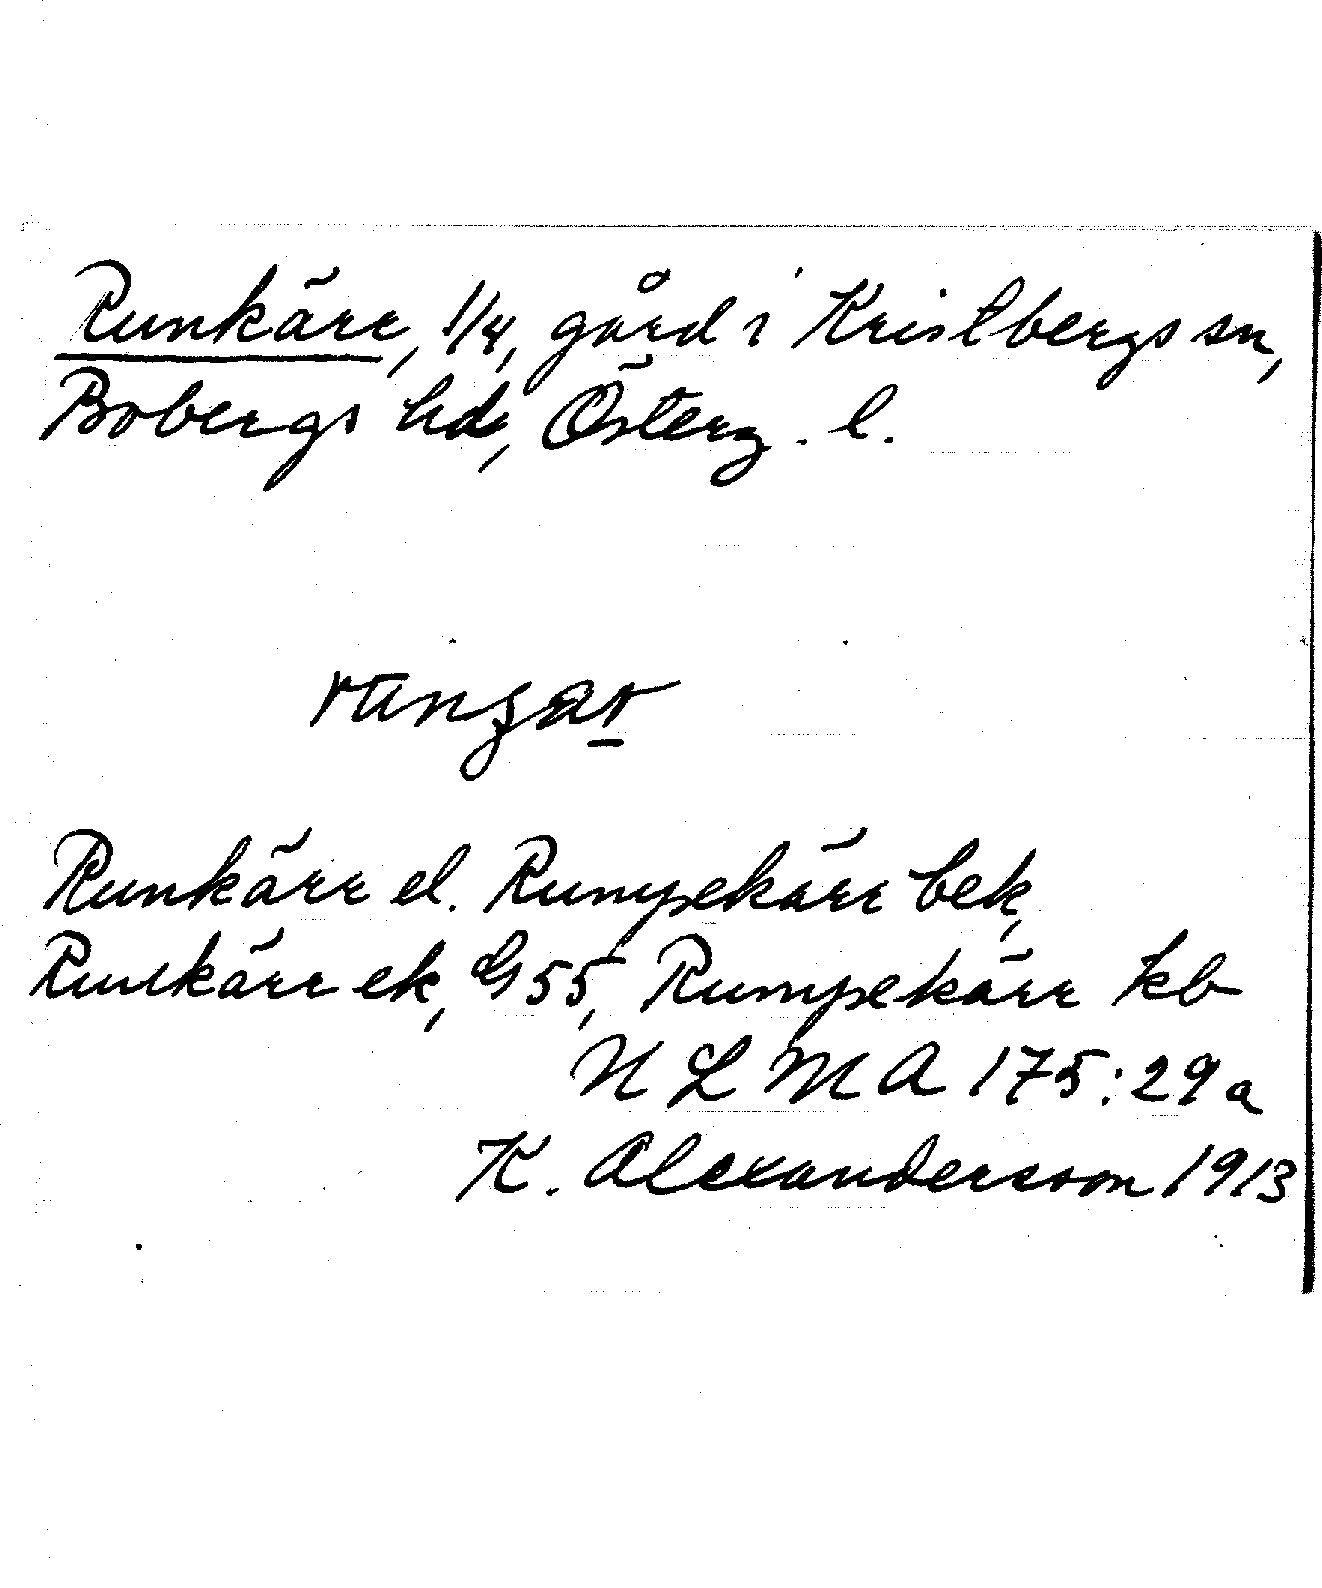 Runkärr, 1/4, gård i Kristbergs sn,
Bobergs hd, Österg. l.
Runkärr el. Rumpekärr bek,
Runkärr ek, G 55, Rumpekärr kb
N L M A 175:29a
K. Alexandersson 1913